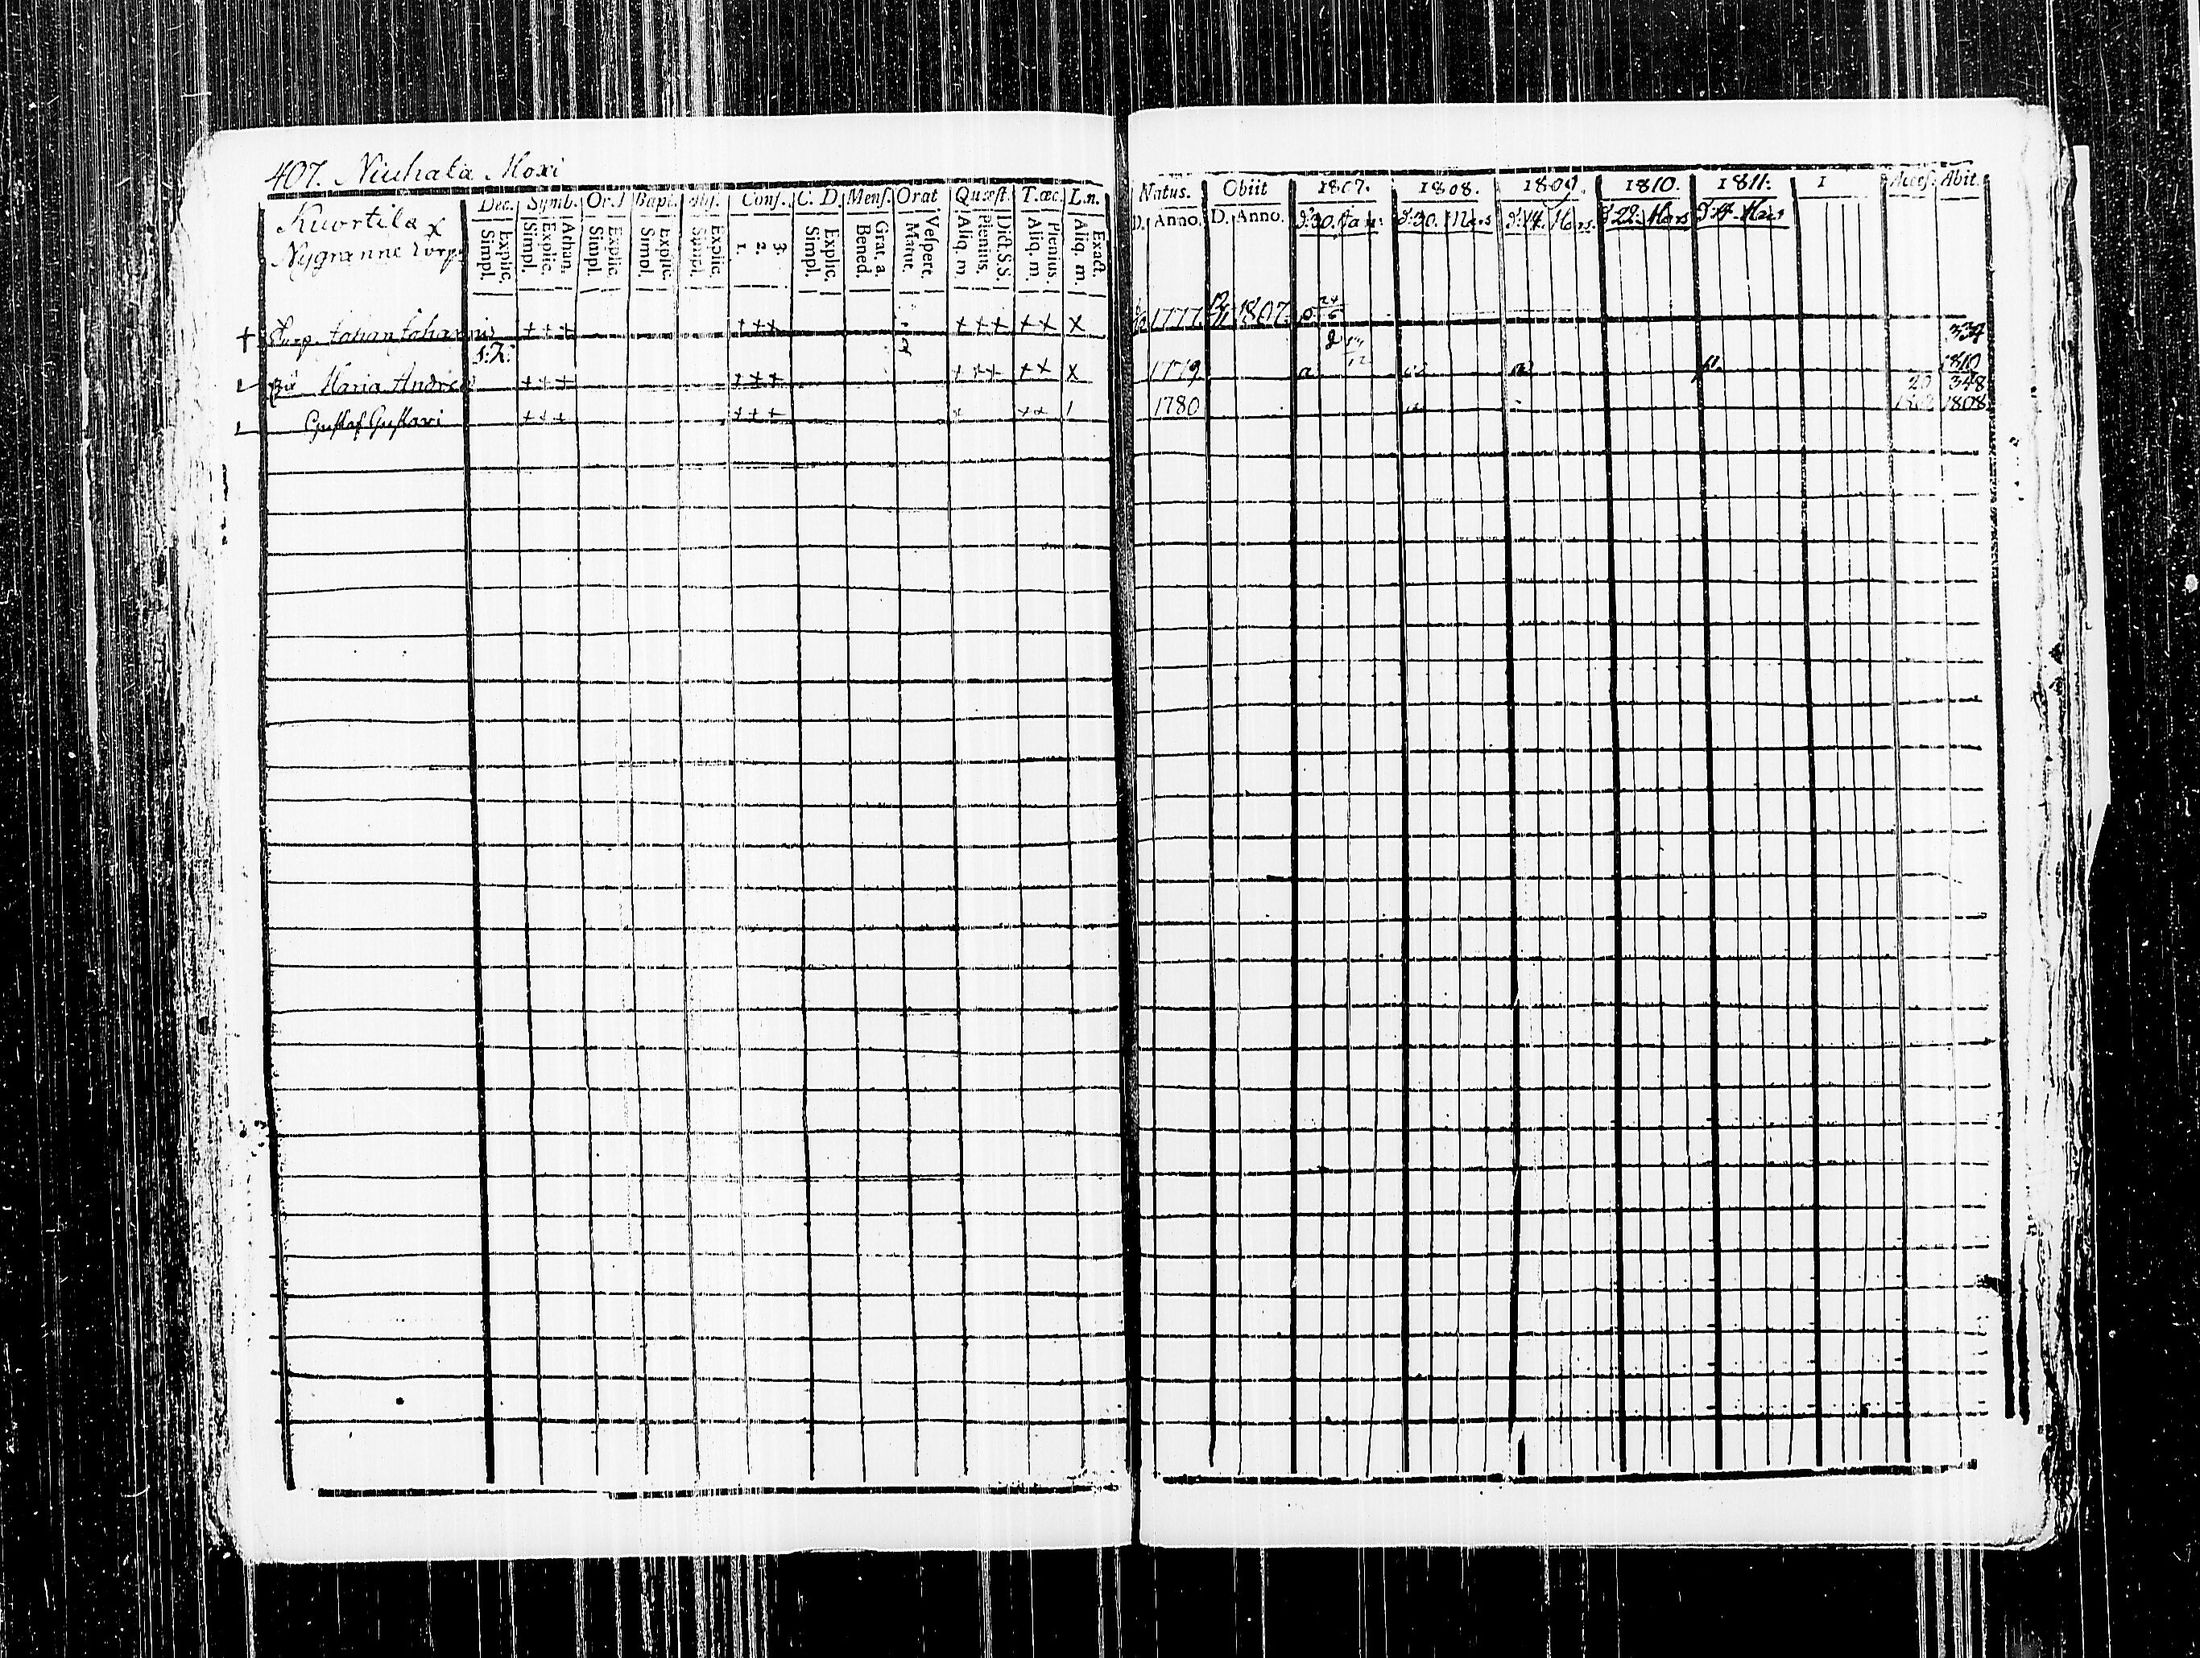 407. Niuhala Moxi
Kuortila x
Nygranne torp
Dec. Symb. Or.J Bapt. Abs. Conf. C. D. Menſ. Orat Quæſt. T.œc. L.n.
Explic. Simpl. Athan. Explic. Simpl. Explic. Simpl. Explic. Simpl. Explic. Simpl. 3. 2. 1. Explic. Simpl. Grat. a. Bened. Veſpert. Matut. Dict.S.S. Plenius. Aliq. m. Plenius. Aliq. m. Exact. Aliq. m.
Natus. Obiit 1807. 1808. 1809. 1810. 1811. 1 Acceſ. Abit.
D. Anno. D. Anno. d:30. Jan: d:30. Mars d:14. Mars. d 22. Mars d:14. Mars
† Johan Johannis +++ +++ +++ ++ x 1777. 1807. 334
1810
Maria Andrea +++ +++ +++ ++ x 1779 348
Gustaf Gustavi +++ +++ x ++ / 1780 1808